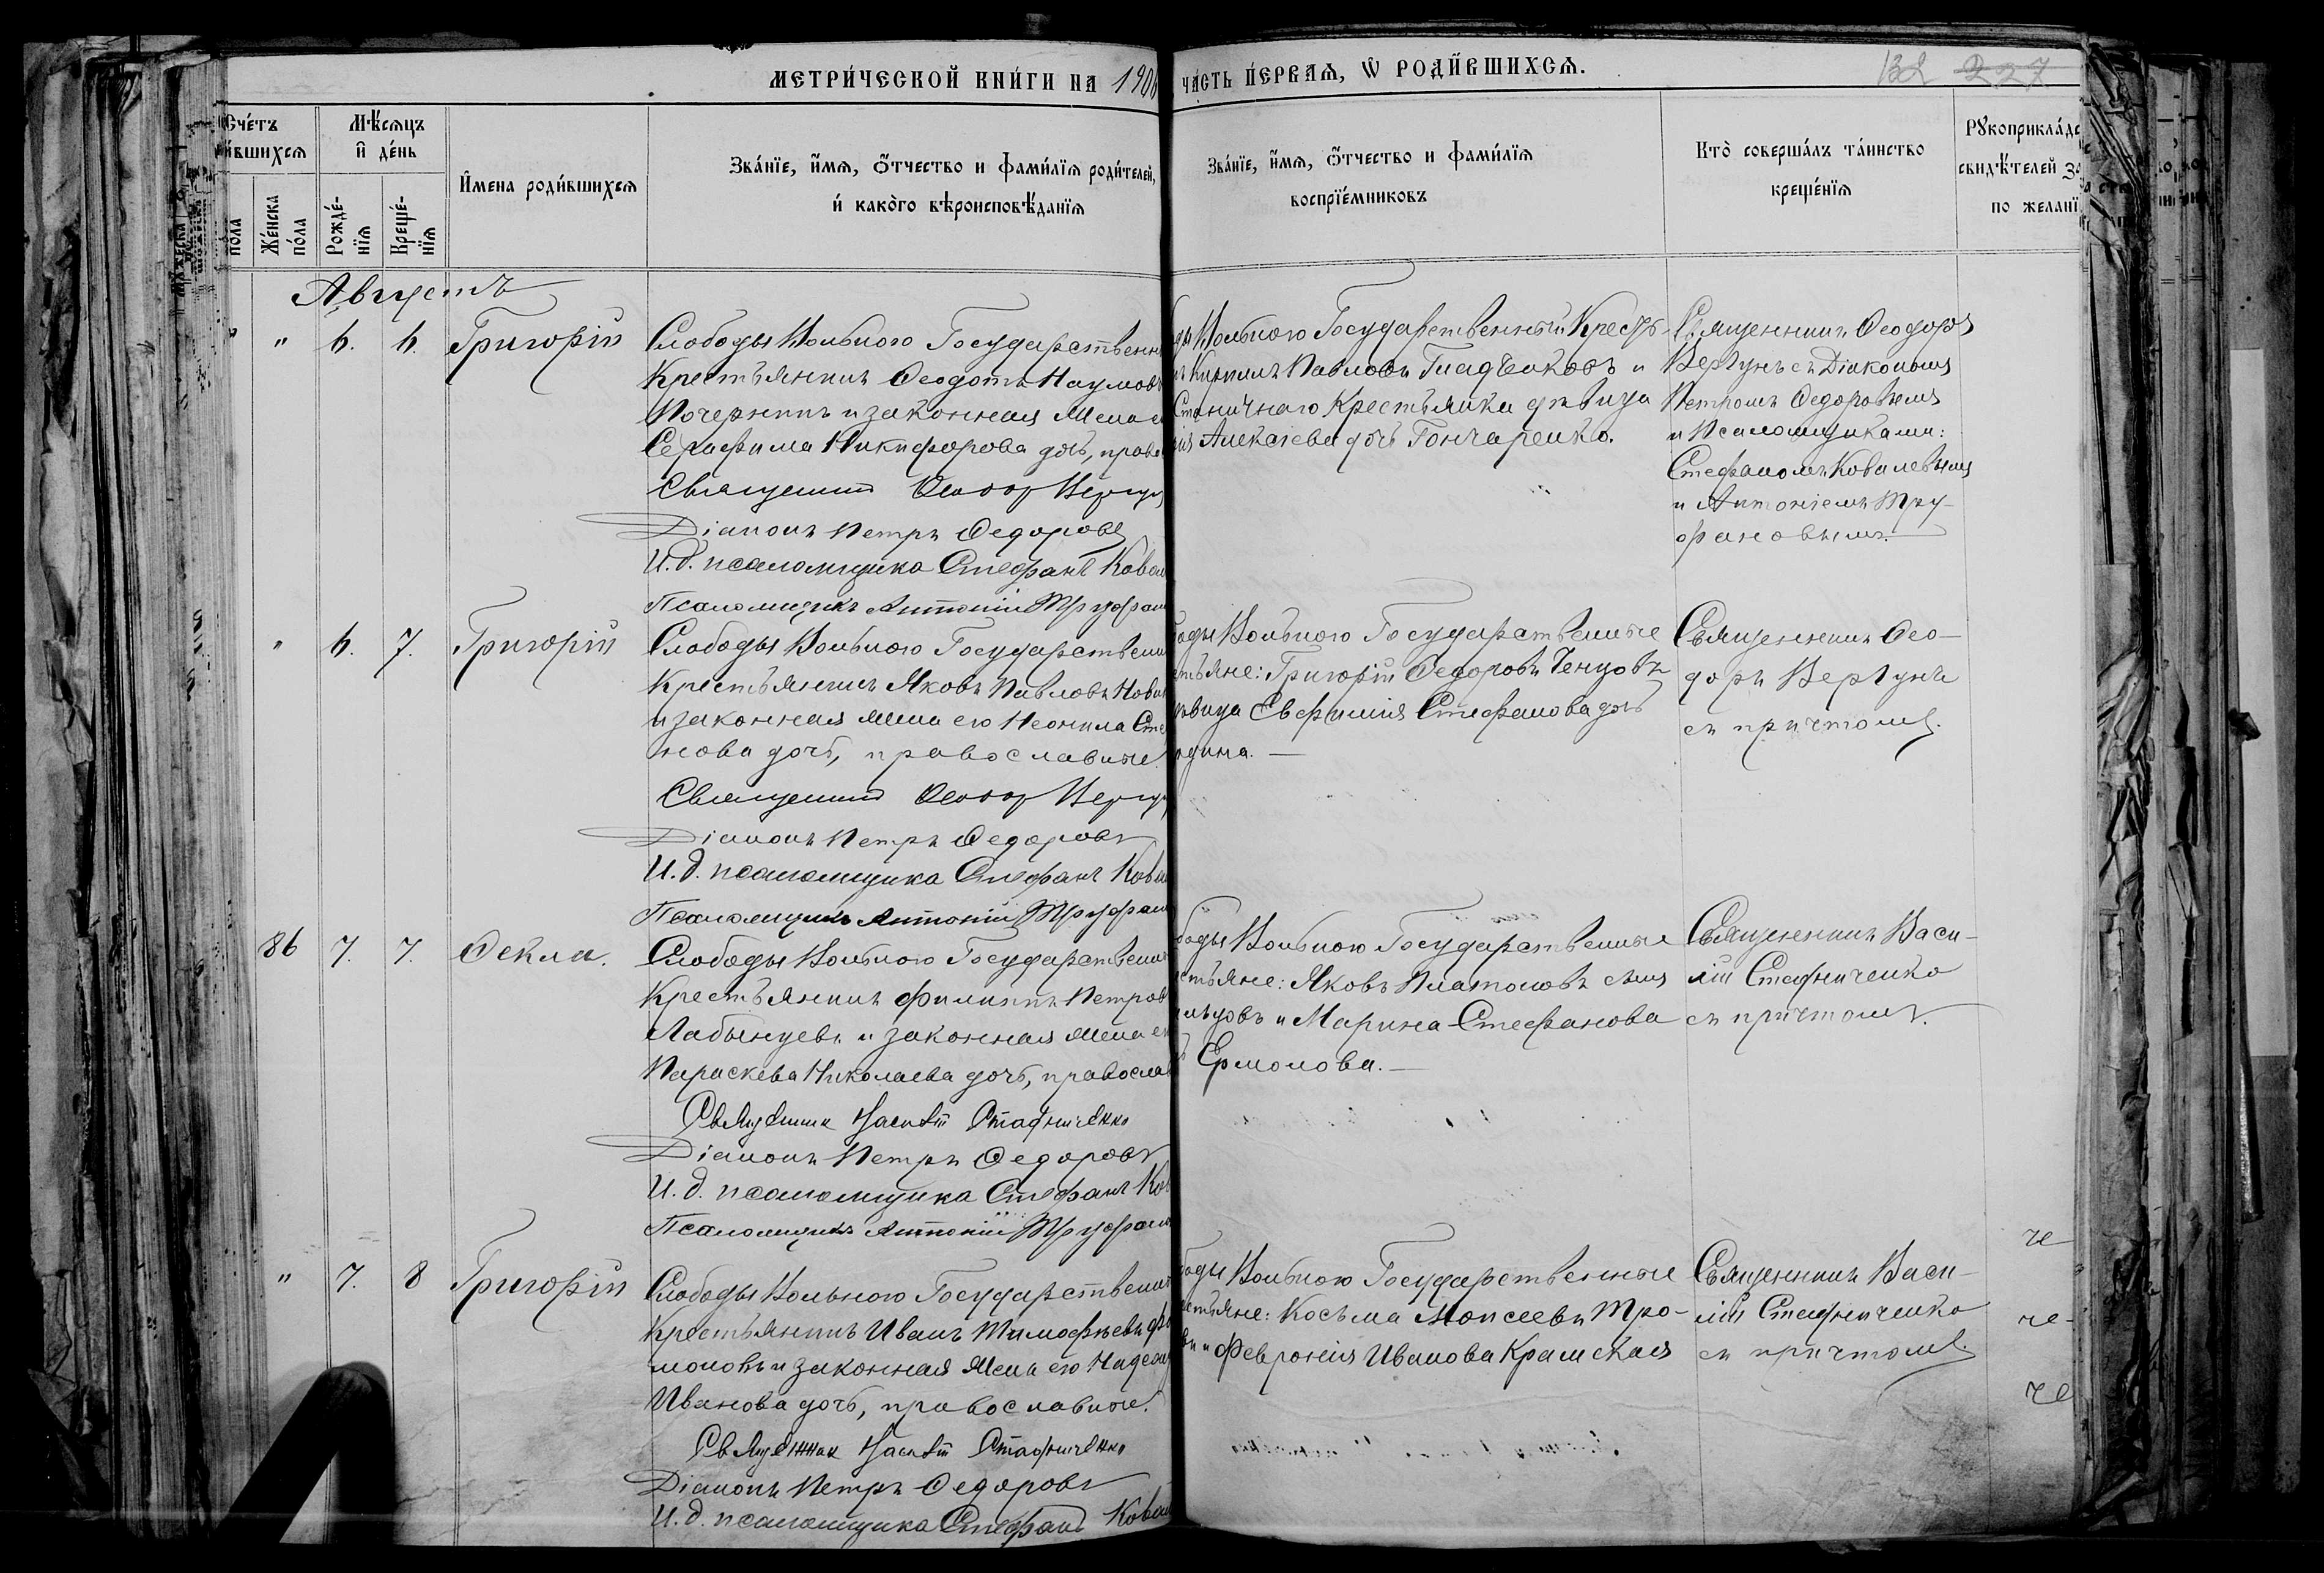 МЕТРИ́ЧЕСКОЙ КНИ́ГИ НА 1906
ЧА́СТЬ ПЕ́РВАЯ, Ѡ РОДИ́ВШИХСЯ.
132 227
Сче́тъ
и́вшихся
Мѣ́сяцъ
и҆ де́нь
по́ла
Же́нска по́ла
Рожде́нїя
Креще́нїя
И҆мена роди́вшихся
Зва́нїе, и҆́мя, ѻ҆́тчество и фами́лїя роди́телей,
и҆ како́го вѣроисповѣ́данїя
Зва́нїе, и҆́мя, ѻ҆́тчество и фами́лїя
воспрїе́мниковъ
Кто̀ соверша́лъ та́инство
креще́нїя
Рꙋкоприкла́дс
свидѣ́телей за
по желанї
Августъ
" " 6. 6. Григорій
Слободы Вольного Государственн
Крестьянинъ Ѳеодотъ Наумовъ
Почернинъ и законная жена е
Серафима Никифорова дочь, право
Священник Ѳеодор Вергун
Діаконъ Петръ Ѳедоровъ
И.д. псаломщика Стефанъ Ковал
Псаломщикъ Антоній Труфан
ды Вольного Государственный Кресть
ъ Кириллъ Павловъ Гладченковъ и
Станичнаго Крестьянина дѣвица
ія Алексіева дочь Гончаренко.
Священникъ Ѳеодоръ
Вергунъ съ Діакономъ
Петромъ Ѳедоровымъ
и Псаломщиками:
Стефаномъ Ковалевымъ
и Антоніемъ Тру-
фановымъ.
" 6. 7. Григорій
Слободы Вольного Государственн
Крестьянинъ Яковъ Павловъ Нови
и законная жена его Неонила Сте
нова дочь, православные.
Священник Ѳеодор Вергун
Діаконъ Петръ Ѳедоровъ
И.д. псаломщика Стефанъ Ковал
Псаломщикъ Антоній Труфан
оды Вольного Государственные
стьяне: Григорій Ѳедоровъ Ченцовъ
ѣвица Евфимія Стефанова дочь
один­а. —
Священникъ Ѳео-
доръ Вергунъ
съ причтомъ.
86 7. 7. Ѳекла.
Слободы Вольного Государственн
Крестьянинъ Филиппъ Петров
Лабынцевъ и законная жена е
Параскева Николаева дочь, православ
Священник Василій Стафниченко
Діаконъ Петръ Ѳедоровъ
И.д. псаломщика Стефанъ Ков
Псаломщикъ Антоній Труфан
боды Вольного Государственные
стьяне: Яковъ Платоновъ сынъ
льцовъ и Марина Стефанова
ь Ермолова. —
Священникъ Васи-
лій Стафниченко
съ причтомъ.
" 7. 8 Григорій
Слободы Вольного Государственн
Крестьянинъ Иванъ Тимоѳѣевъ Фи
моновъ и законная жена его Надежд
Иванова дочь, православные.
Священник Василій Стафниченко
Діаконъ Петръ Ѳедоровъ
И.д. псаломщика Стефанъ Ковал
боды Вольного Государственные
стьяне: Косьма Моисеевъ Тро-
въ и Февронія Иванова Крамская
Священникъ Васи-
лій Стафниченко
съ причтомъ.
че
че-
че